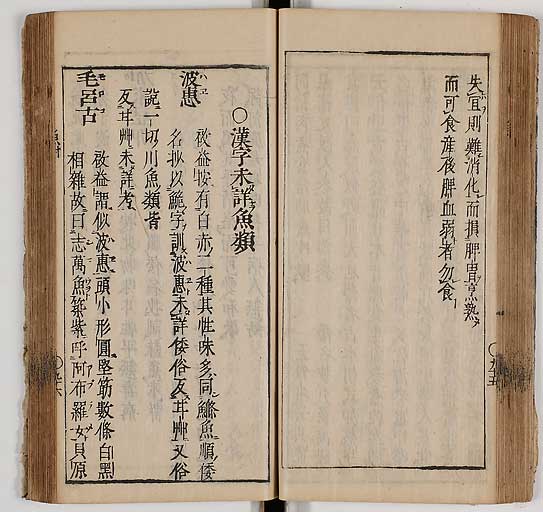 失宜則難消化而損脾胃烹熟
而可食産後脾血弱者勿食
九五
○漢字未詳魚類
波恵
啓益按有白赤二種其性味多同鱅魚順倭
名抄以鮠字訓波恵未詳倭俗及艸又俗
説一切川魚類皆
及艸未詳考
毛呂古
啓益謂似波恵頭小形圓堅筋數條白黑
相雜故曰志萬魚紫呼阿布羅女貝原
九六